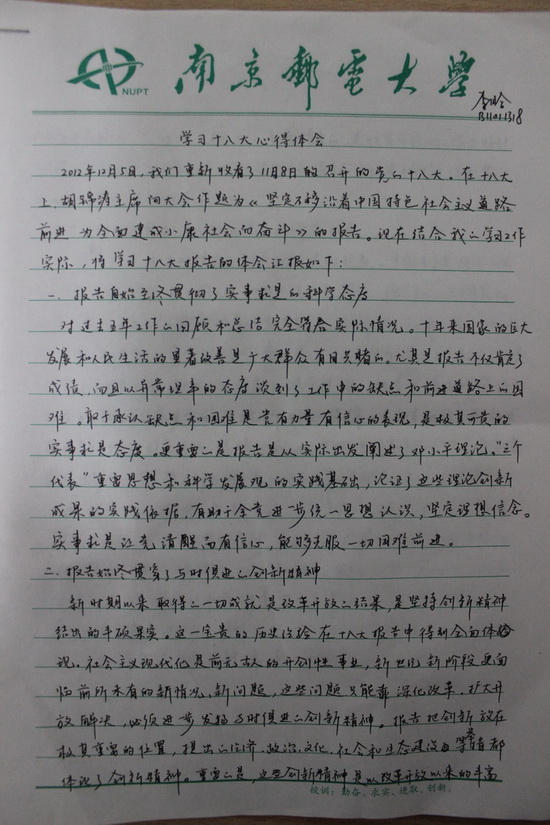 NUPT
南京邮电大学
B11011318
学习十八大心得体会
2012年12月5日,我们重新收看了11月8日的召开的党的十八大。在十八大
上,胡锦涛主席向大会作题为《坚定不移沿着中国特色社会主义道路
前进 为全面建成小康社会而奋斗》的报告。现在结合我的学习工作
实际,将学习十八大报告的体会汇报如下:
一、报告自始至终贯彻了实事求是的科学态度
对过去五年工作的回顾和总结完全符合实际情况。十年来国家的巨大
发展和人民生活的显著改善是广大群众有目共睹的。尤其是报告不仅肯定了
成绩,而且以非常坦率的态度谈到了工作中的缺点和前进道路上的困
难。敢于承认缺点和困难是党有力量有信心的表现,是极其可贵的
实事求是态度。更重要的是报告是从实际出发阐述了邓小平理论。“三个
代表”重要思想和科学发展观的实践基础,论证了这些理论创新
成果的实践依据,有助于全党进一步统一思想认识,坚定理想信念。
实事求是让党清醒而有信心,能够克服一切困难前进。
二、报告始终贯穿了与时俱进的创新精神
新时期以来取得的一切成就是改革开放的结果,是坚持创新精神
结出的丰硕果实。这一宝贵的历史经验在十八大报告中得到全面体
现。社会主义现代化是前无古人的开创性事业,新世纪新阶段更面
临前所未有的新情况、新问题,这些问题只能靠深化改革、扩大开
放解决,必须进一步发扬与时俱进的创新精神。报告把创新放在
极其重要的位置,提出的经济、政治、文化、社会和生态建设的 都
体现了创新精神。重要的是,这些创新精神是以改革开放以来的丰富
校训:勤奋、求实、进取、创新。